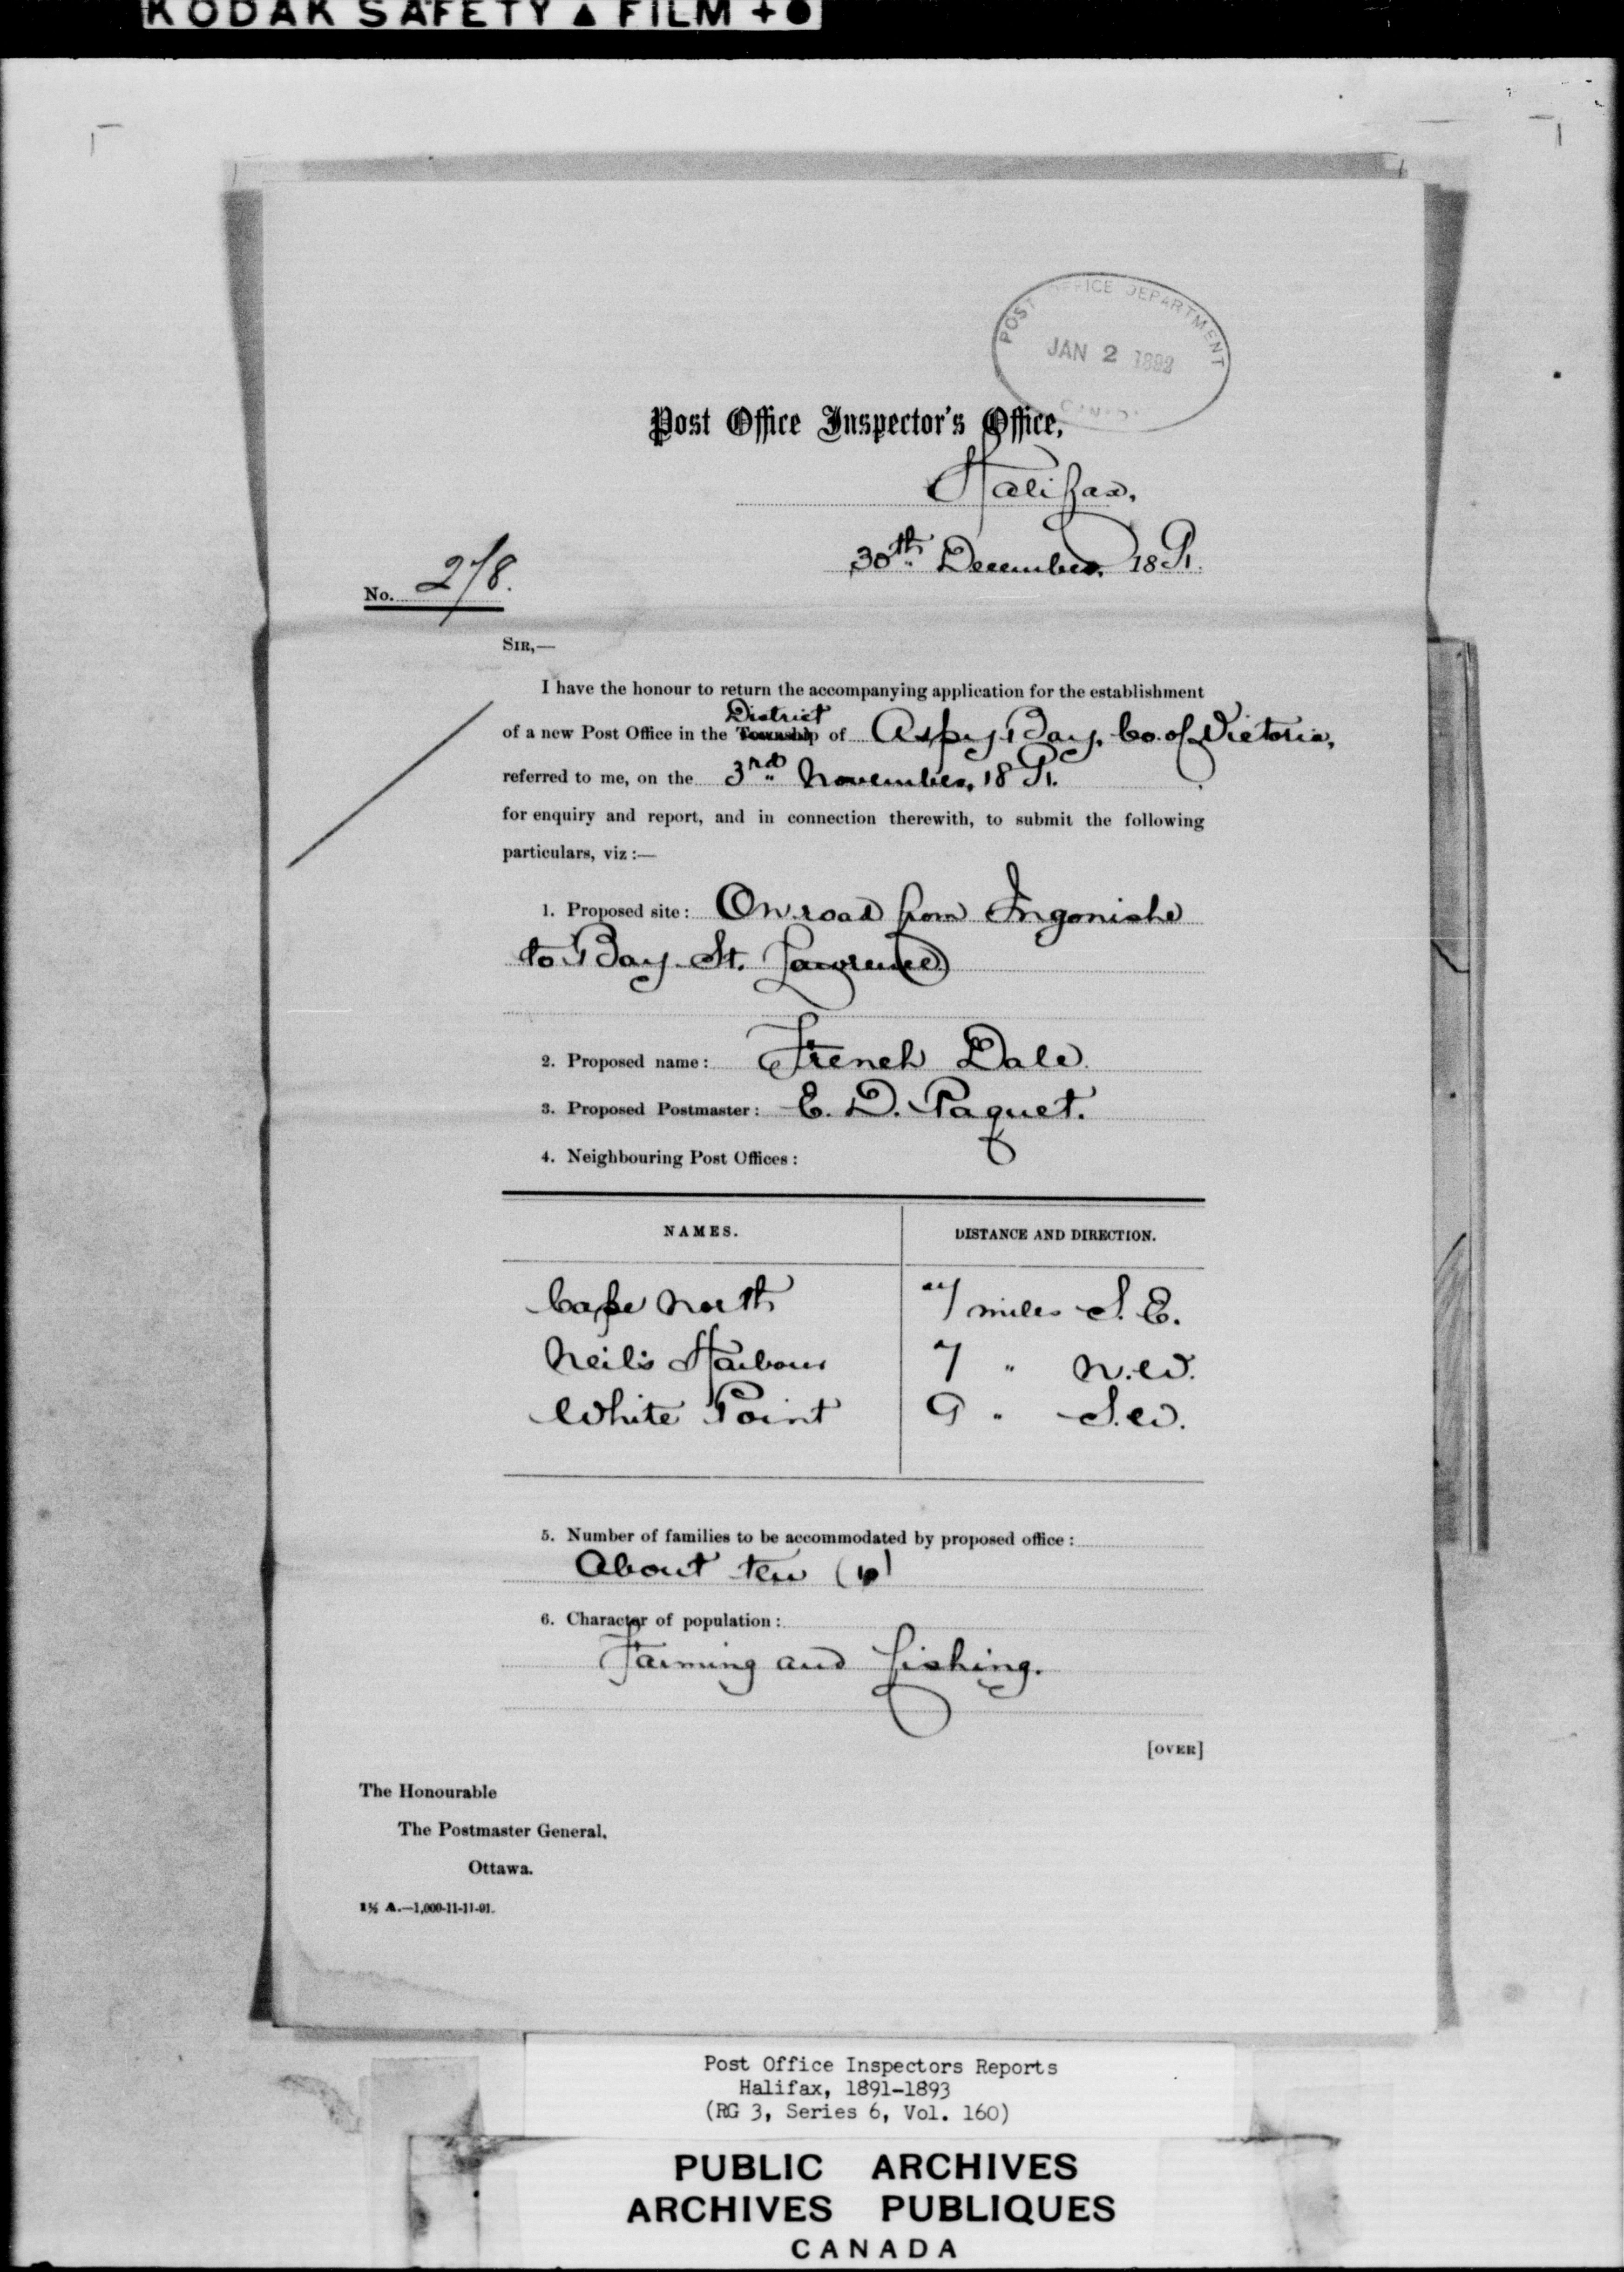 KODAK SAFETY ▲ FILM + ●
POST OFFICE DEPARTMENT
JAN 2 1892
CANADA
Post Office Inspector's Office,
Halifax,
30th December, 1891.
No. 278.
SIR,—
I have the honour to return the accompanying application for the establishment
District
of a new Post Office in the Township of Aspy Bay, Co. of Victoria,
referred to me, on the 3rd November, 1891.
for enquiry and report, and in connection therewith, to submit the following
particulars, viz :—
1. Proposed site: On road from Ingonishe
to Bay St. Lawrence
2. Proposed name: French Dale.
3. Proposed Postmaster: E. D. Paquet.
4. Neighbouring Post Offices:
NAMES. DISTANCE AND DIRECTION.
Cape North 7 miles S. E.
Neil's Harbour 7 " N.W.
White Point 9 " S.W.
5. Number of families to be accommodated by proposed office:
About ten (10)
6. Character of population:
Farming and fishing.
[OVER]
The Honourable
The Postmaster General,
Ottawa.
1½ A.—1,000-11-11-91.
Post Office Inspectors Reports
Halifax, 1891-1893
(RG 3, Series 6, Vol. 160)
PUBLIC ARCHIVES
ARCHIVES PUBLIQUES
CANADA